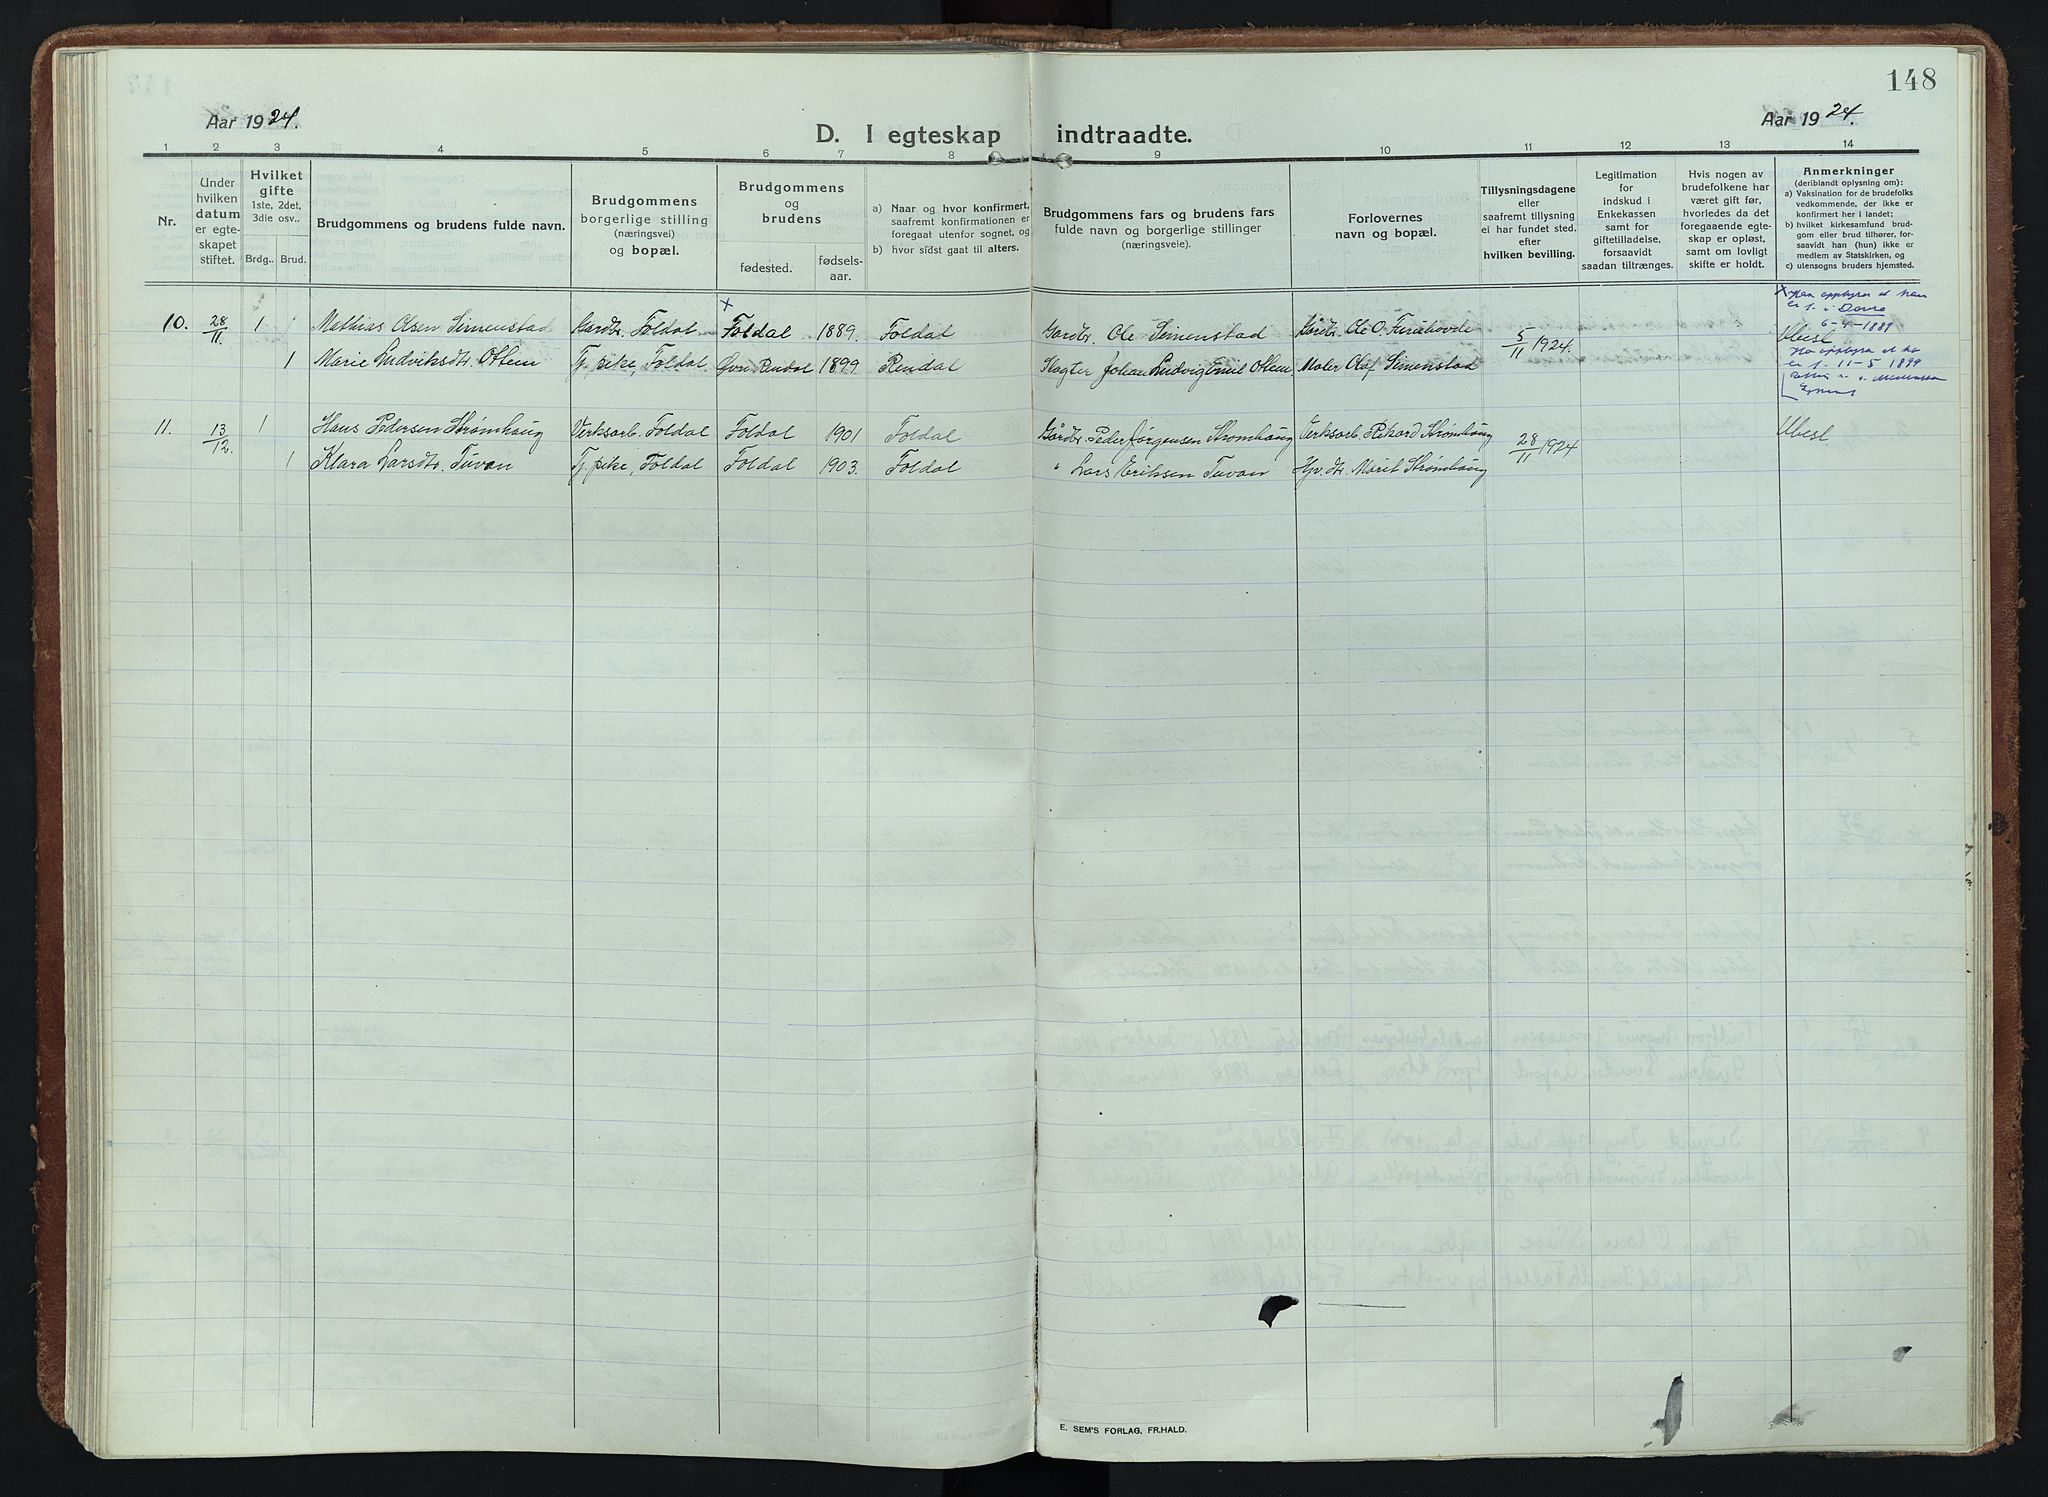 148
Aar 1924.
D. I egteskap indtraadte.
Aar 1924.
1 2 3 4 5 6 7 8 9 10 11 12 13 14
Nr.
Under
hvilken
datum
er egte-
skapet
stiftet.
Hvilket
gifte
1ste, 2det,
3die osv..
Brdg..
Brud.
Brudgommens og brudens fulde navn.
Brudgommens
borgerlige stilling
(næringsvei)
og bopæl.
Brudgommens
og
brudens
fødested.
fødsels-
aar.
a) Naar og hvor konfirmert,
saafremt konfirmationen er
foregaat utenfor sognet, og
b) hvor sidst gaat til alters.
Brudgommens fars og brudens fars
fulde navn og borgerlige stillinger
(næringsveie).
Forlovernes
navn og bopæl.
Tillysningsdagene
eller
saafremt tillysning
ei har fundet sted,
efter
hvilken bevilling.
Legitimation
for
indskud i
Enkekassen
samt for
giftetilladelse,
forsaavidt
saadan tiltrænges.
Hvis nogen av
brudefolkene har
været gift før,
hvorledes da det
foregaaende egte-
skap er opløst,
samt om lovligt
skifte er holdt.
Anmerkninger
(deriblandt oplysning om):
a) Vaksination for de brudefolks
vedkommende, der ikke er
konfirmert her i landet;
b) hvilket kirkesamfund brud-
gom eller brud tilhører, for-
saavidt han (hun) ikke er
medlem av Statskirken, og
c) utensogns bruders hjemsted.
10. 28/11 1 Mathias Olsen Simenstad Gardbr. Foldal x Foldal 1889. Foldal Gardbr. Ole Simenstad Gårdbr. Ole O. Furuhovde 5/11 1924. Ubesl
x Han oppgyes at han
er f. i Dovre
6-4-1889
1 Marie Ludviksdtr. Ottem Tj. pike, Foldal Øvre Rendal 1899 Rendal Slagter Johan Ludvig Emil Ottem, Maler Olaf Simenstad
er f. 11-5 1899
11. 13/12. 1 Hans Pedersen Strømhaug Verksarb. Foldal Foldal 1901 Foldal Gårdbr. Peder Jørgensen Strømhaug Verksarb. Rikard Strømhaug 28/11 1924 Ubesl
1 Klara Larsdtr. Tuvan Tj. pike, Foldal Foldal 1903. Foldal " Lars Eriksen Tuvan Hjv. dtr. Marit Strømhaug
E. SEM'S FORLAG, FR.HALD.